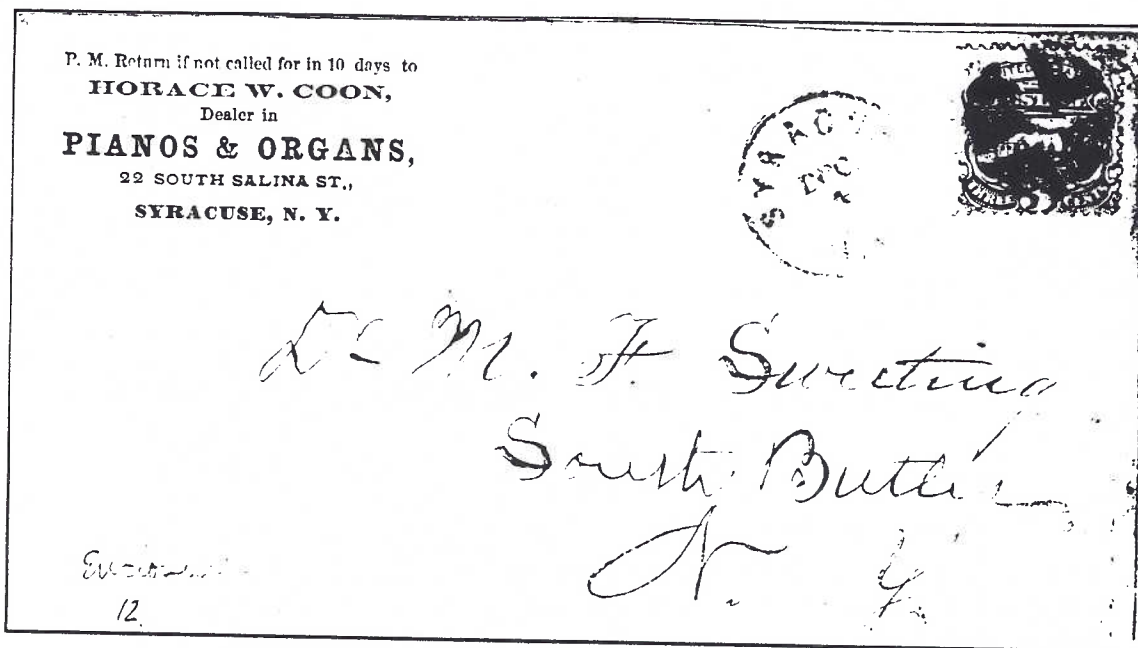 P. M. Return if not called for in 10 days to
HORACE W. COON,
Dealer in
PIANOS & ORGANS,
22 SOUTH SALINA ST.,
SYRACUSE, N. Y.
SYRAC
DEC
Dr M. F. Sweeting
South Butler
N. Y.
12